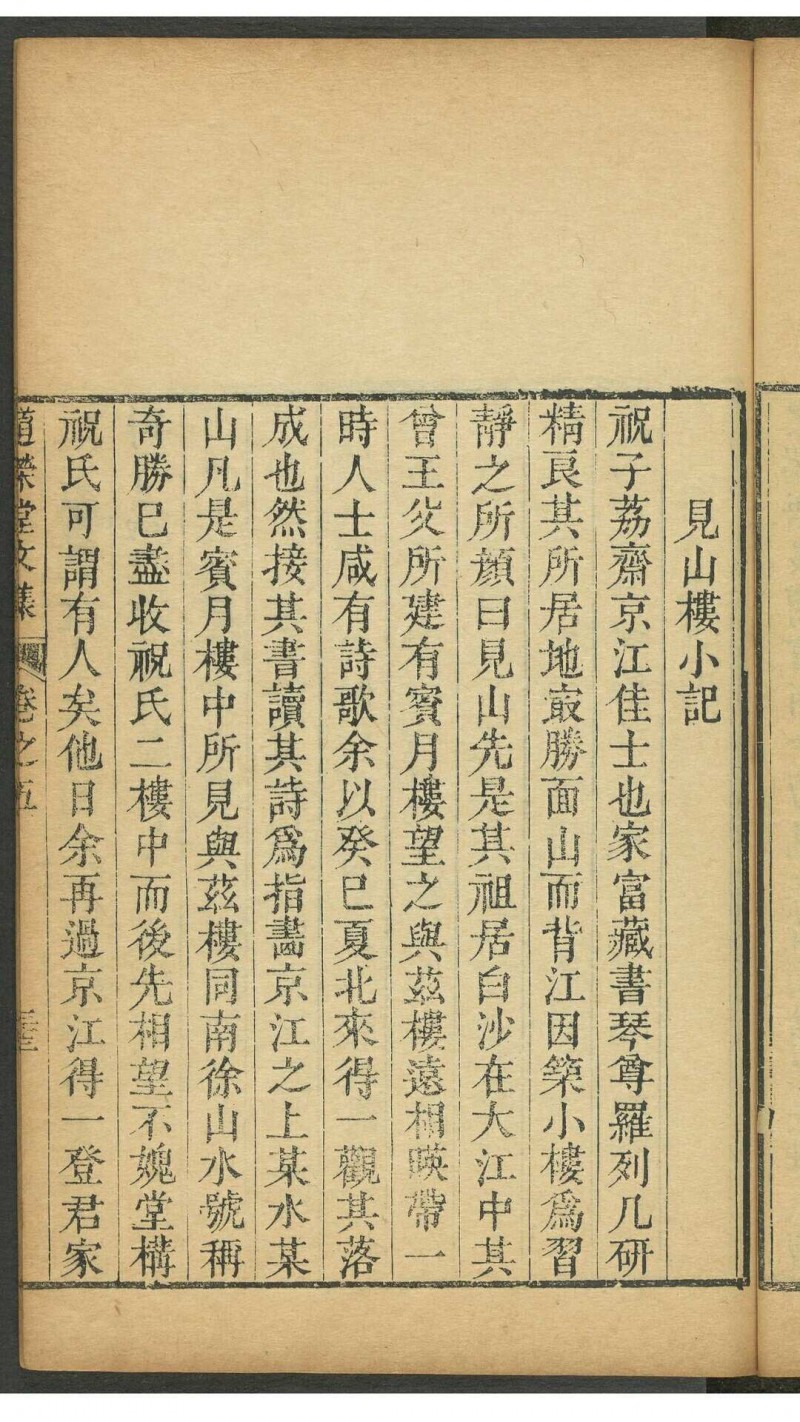 見山樓小記
祝子荔齋京江佳士也家富藏書琴尊羅列几研
精良其所居地㝡勝面山而背江因築小樓爲習
靜之所顏曰見山先是其祖居白沙在大江中其
曾王父所建有賓月樓望之與茲樓遠相暎帶一
時人士咸有詩歌余以癸巳夏北來得一觀其落
成也然接其書讀其詩爲指畵京江之上某水某
山凡是賓月樓中所見與茲樓同南徐山水號稱
奇勝已盡收祝氏二樓中而後先相望不媿堂構
祝氏可謂有人矣他日余再過京江得一登君家
道榮堂文集 卷之五